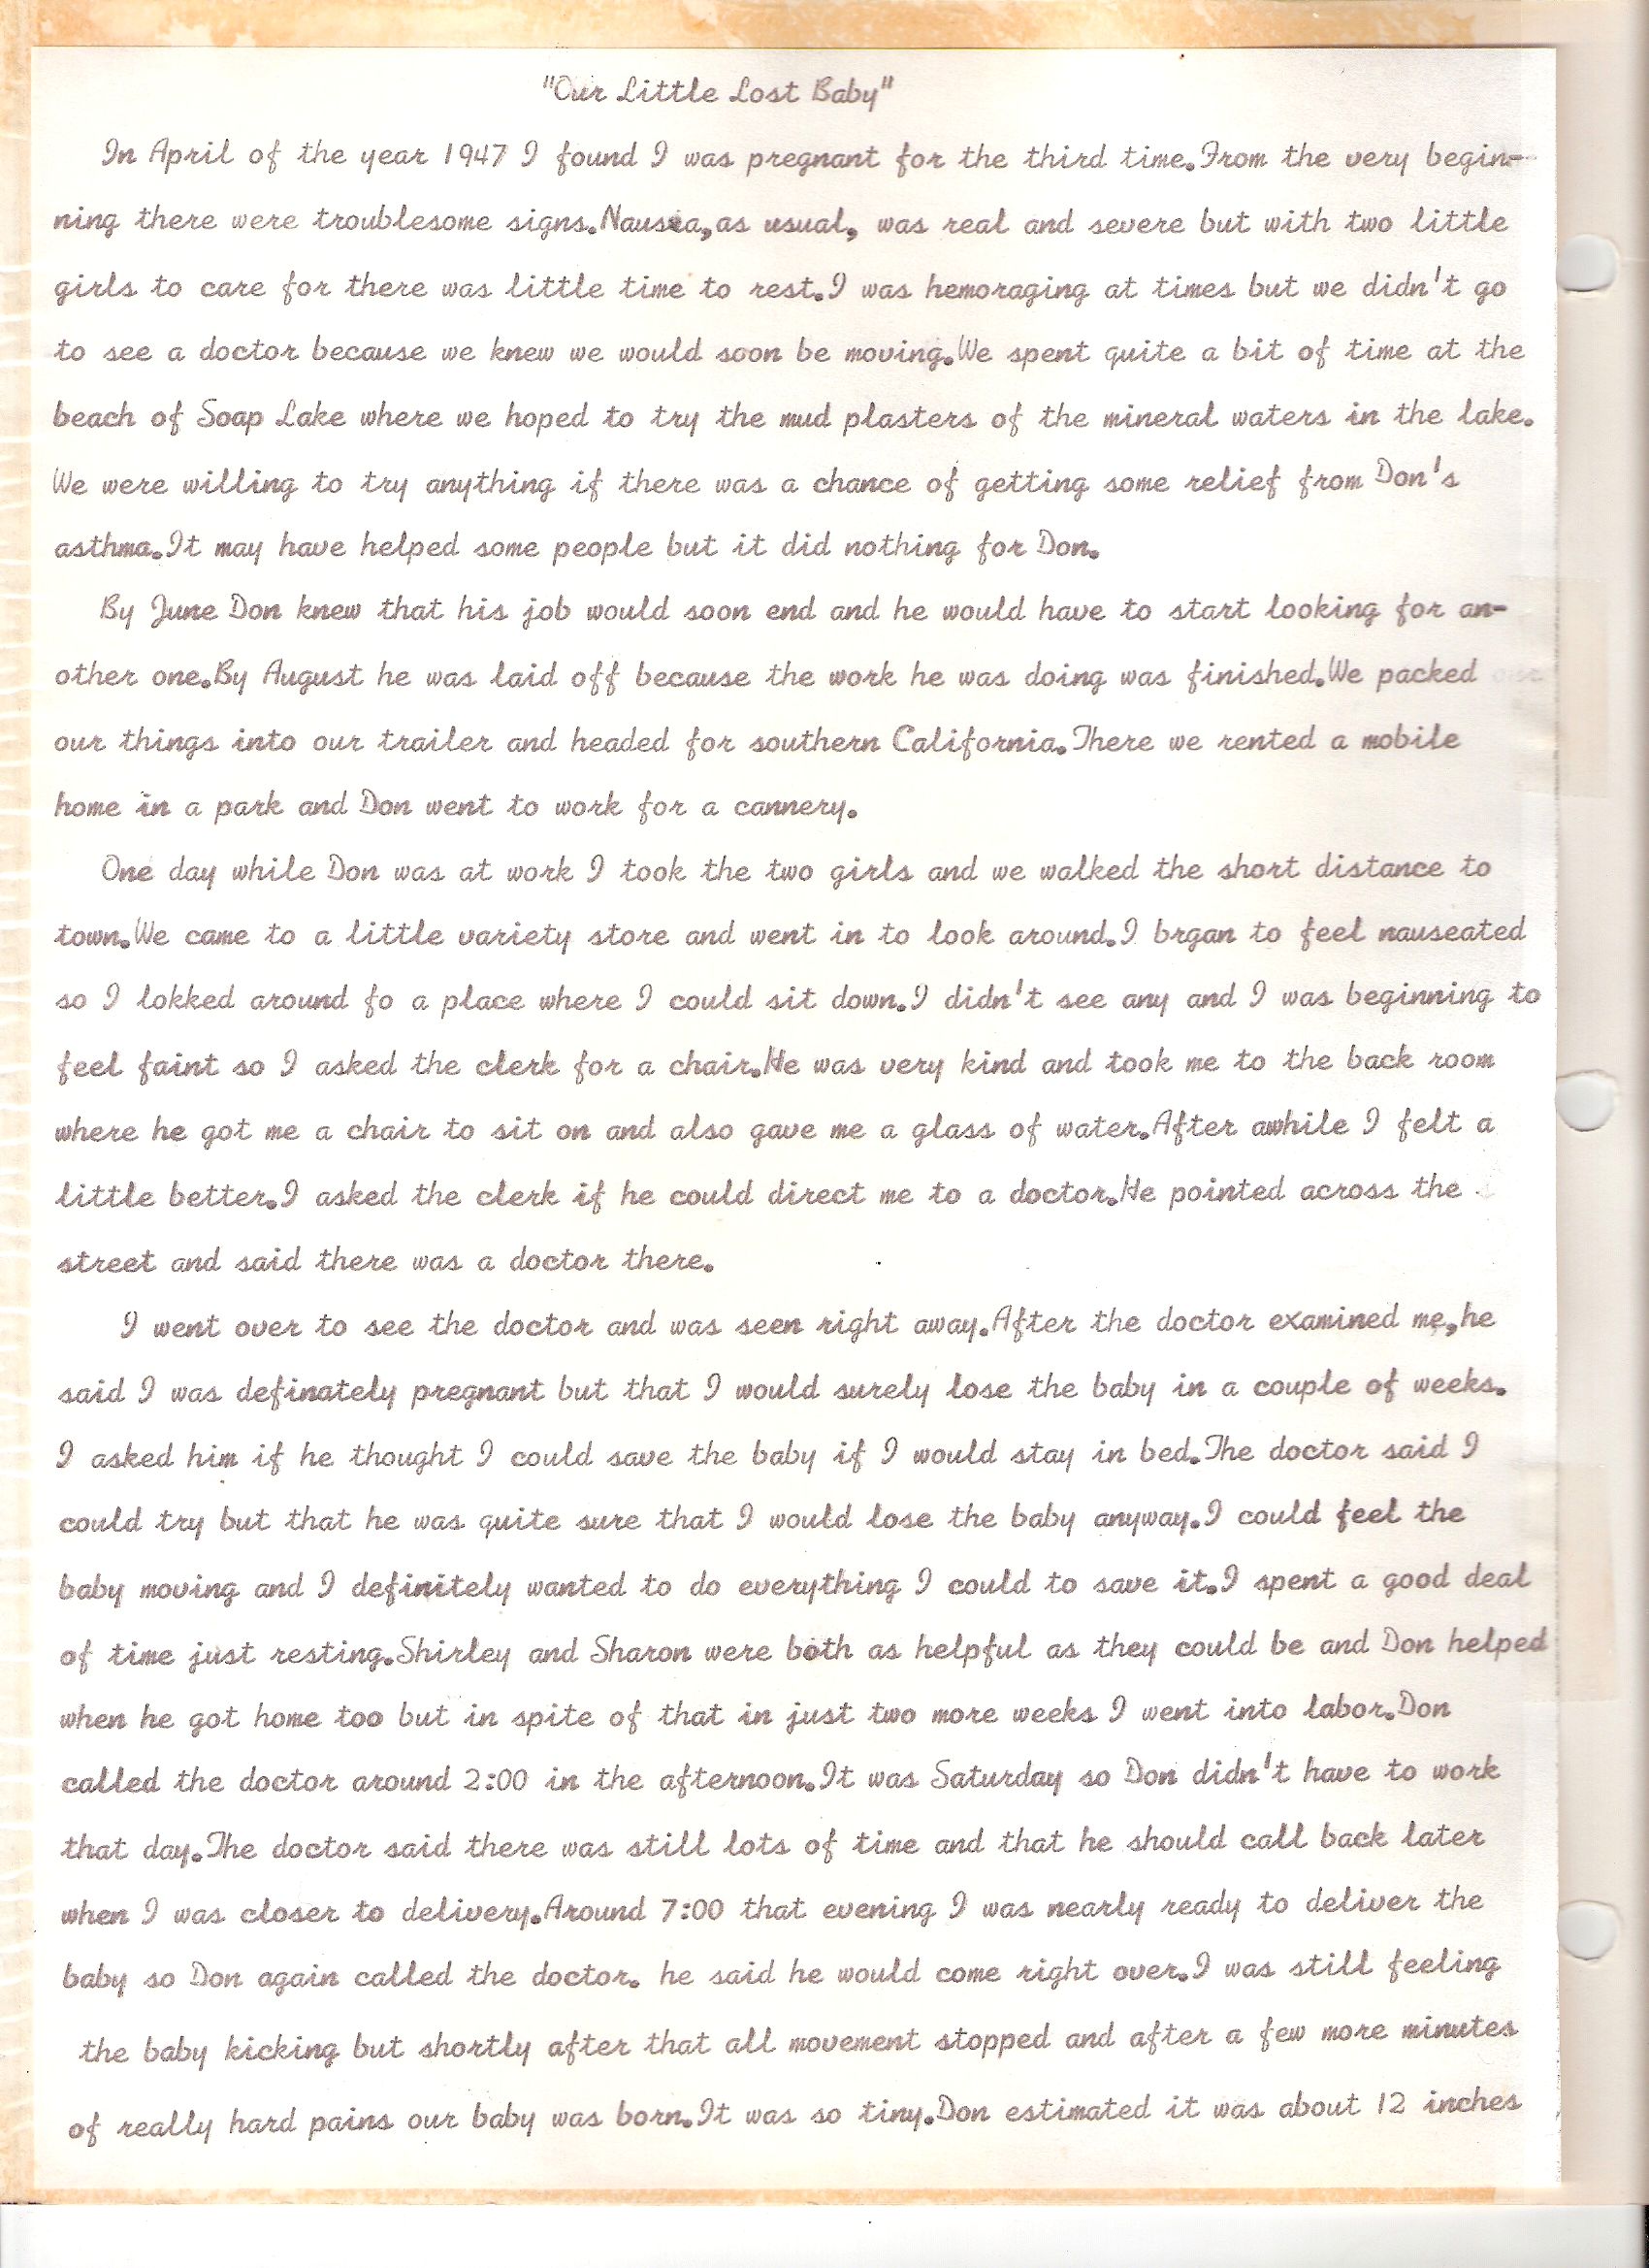 "Our Little Lost Baby"
In April of the year 1947 I found I was pregnant for the third time.From the very begin-
ning there were troublesome signs.Nausea,as usual, was real and severe but with two little
girls to care for there was little time to rest.I was hemoraging at times but we didn't go
to see a doctor because we knew we would soon be moving.We spent quite a bit of time at the
beach of Soap Lake where we hoped to try the mud plasters of the mineral waters in the lake.
We were willing to try anything if there was a chance of getting some relief from Don's
asthma.It may have helped some people but it did nothing for Don.
By June Don knew that his job would soon end and he would have to start looking for an-
other one.By August he was laid off because the work he was doing was finished.We packed
our things into our trailer and headed for southern California.There we rented a mobile
home in a park and Don went to work for a cannery.
One day while Don was at work I took the two girls and we walked the short distance to
town.We came to a little variety store and went in to look around.I brgan to feel nauseated
so I lokked around fo a place where I could sit down.I didn't see any and I was beginning to
feel faint so I asked the clerk for a chair.He was very kind and took me to the back room
where he got me a chair to sit on and also gave me a glass of water.After awhile I felt a
little better.I asked the clerk if he could direct me to a doctor.He pointed across the
street and said there was a doctor there.
I went over to see the doctor and was seen right away.After the doctor examined me,he
said I was definately pregnant but that I would surely lose the baby in a couple of weeks.
I asked him if he thought I could save the baby if I would stay in bed.The doctor said I
could try but that he was quite sure that I would lose the baby anyway.I could feel the
baby moving and I definitely wanted to do everything I could to save it.I spent a good deal
of time just resting.Shirley and Sharon were both as helpful as they could be and Don helped
when he got home too but in spite of that in just two more weeks I went into labor.Don
called the doctor around 2:00 in the afternoon.It was Saturday so Don didn't have to work
that day.The doctor said there was still lots of time and that he should call back later
when I was closer to delivery.Around 7:00 that evening I was nearly ready to deliver the
baby so Don again called the doctor. he said he would come right over.I was still feeling
the baby kicking but shortly after that all movement stopped and after a few more minutes
of really hard pains our baby was born.It was so tiny.Don estimated it was about 12 inches